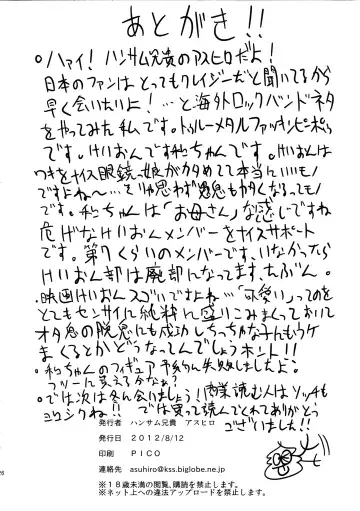 あとがき!!
○ハァイ! ハンサム兄貴のアスヒロだよ!
日本のファンはとってもクレイジーだと聞いてるから
早く会いたいよ! …と海外ロックバンドネタ
をやってみた私です。トゥルーメタルファッキンピポゥ
です。けいおんです和ちゃんです。けいおんは
わきをナイス眼鏡っ娘がカタめてて本当にいいモノ
ですよね〜…
です。和ちゃんは「お母さん」な感じですね
危げなけいおんメンバーをナイスサポート
です。第7くらいのメンバーです、いなかったら
けいおん部は廃部になってます、たぶん。
・映画けいおんスゴいですよね…「可愛い」ってのを
とてもセンサイに純粋に盛りこみまくっておいて
オタ息の脱息にも成功しちっちゃな子んもウケ
まくるとかどうなってんでしょうホント!!
・和ちゃんのフィギュア予約し失敗しましたよ。
フツーに買えるかなぁ?
○では次は冬に会いましょう!
ヨロシクね!! では買って読んでくれてありがとう
ございました!!
発行者 ハンサム兄貴 アスヒロ
発行日 2012/8/12
印刷 PICO
連絡先 asuhiro@kss.biglobe.ne.jp
※18歳未満の閲覧、購読を禁止します。
※ネット上への違法アップロードを禁止します。
26